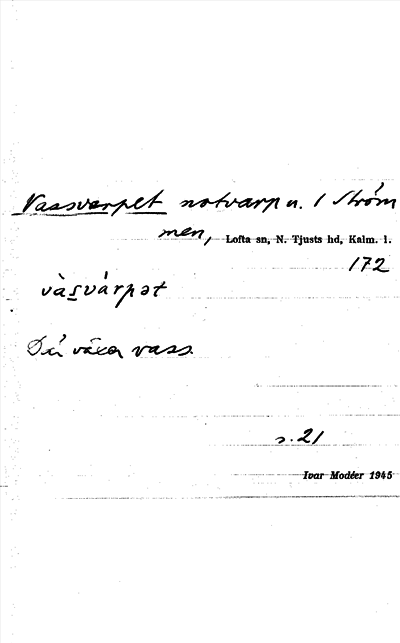 Vassvarpet notvarp n. i Ström
men, Lofta sn, N. Tjusts hd, Kalm. l.
172
vàsvárpət
Där växer vass.
s. 21
Ivar Modéer 1945